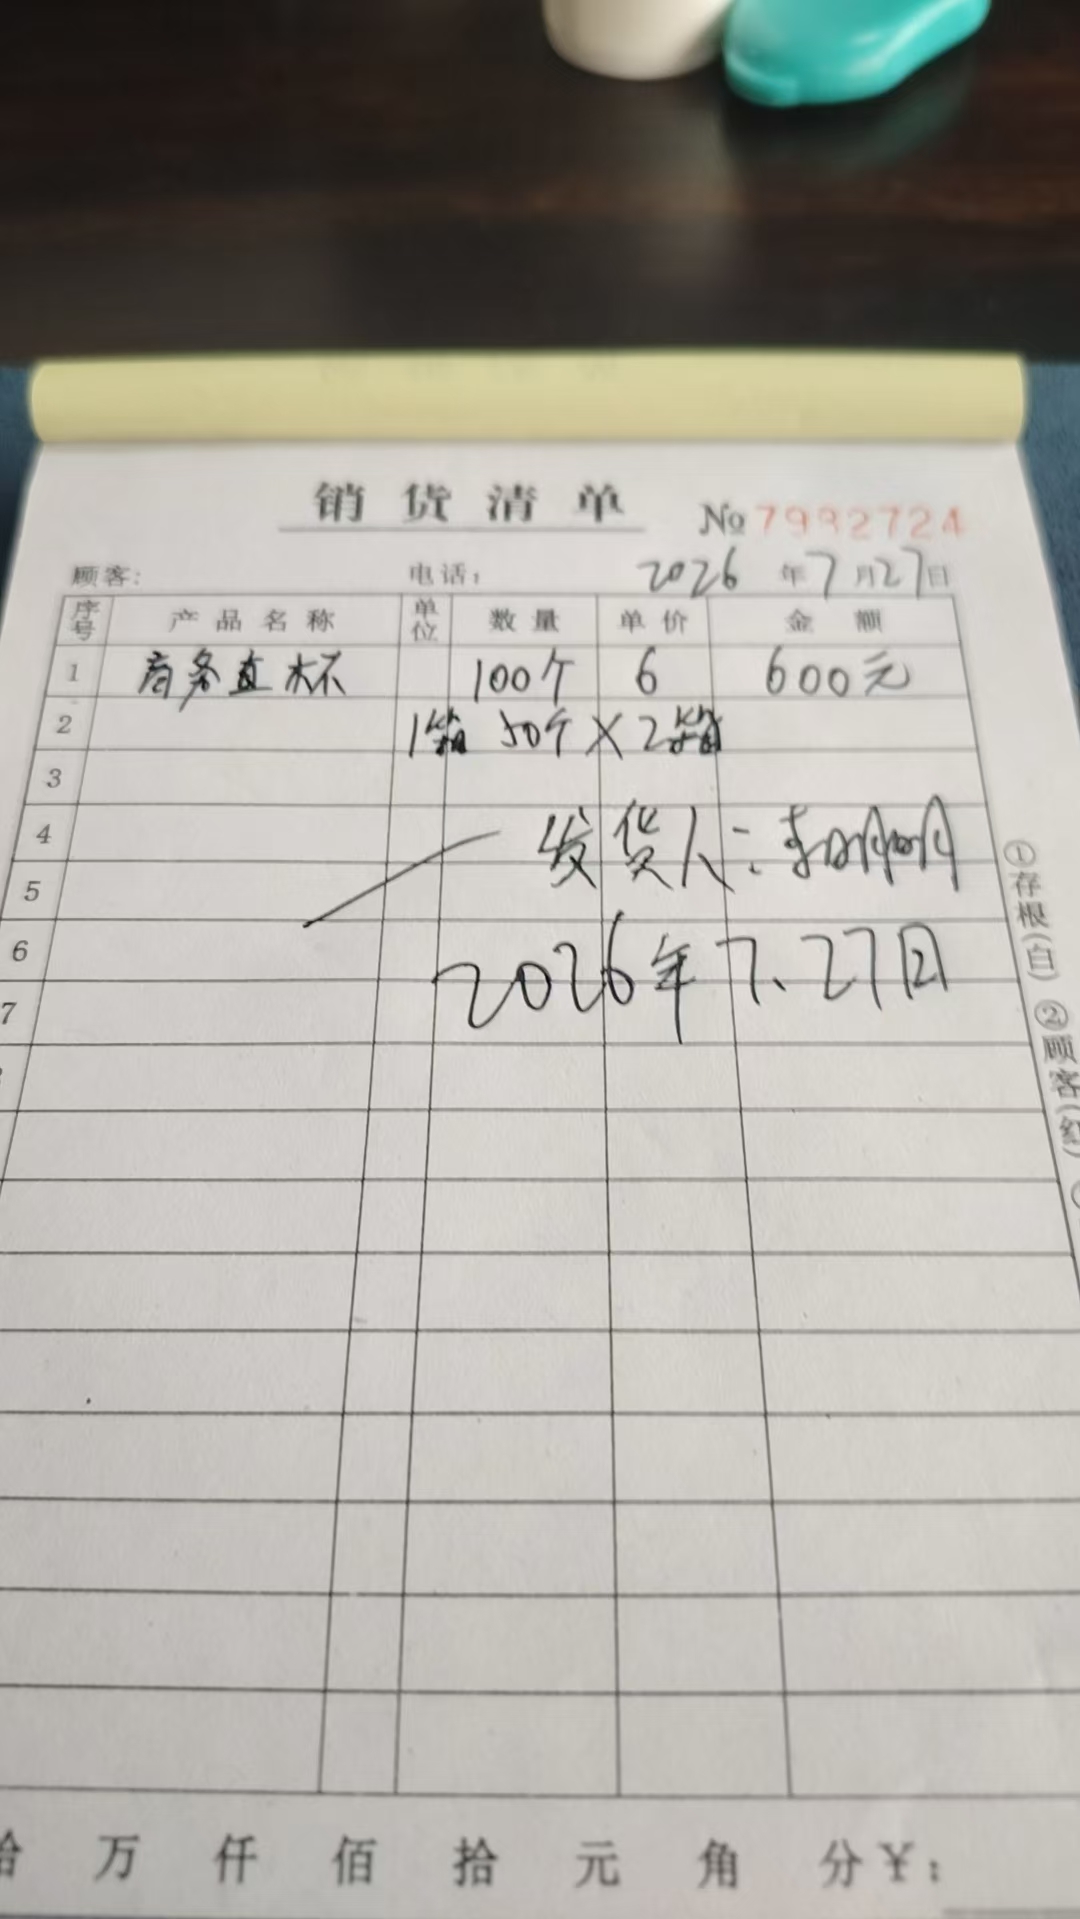 销货清单
No 7992724
顾客: 电话: 2026年7月27日
序号 产品名称 单位 数量 单价 金额
1 商务直杯 100个 6 600元
2 1箱 50个×2箱
3
4 发货人:李明明
5
6 2026年7.27日
7
拾 万 仟 佰 拾 元 角 分¥:
①存根(白) ②顾客(红)